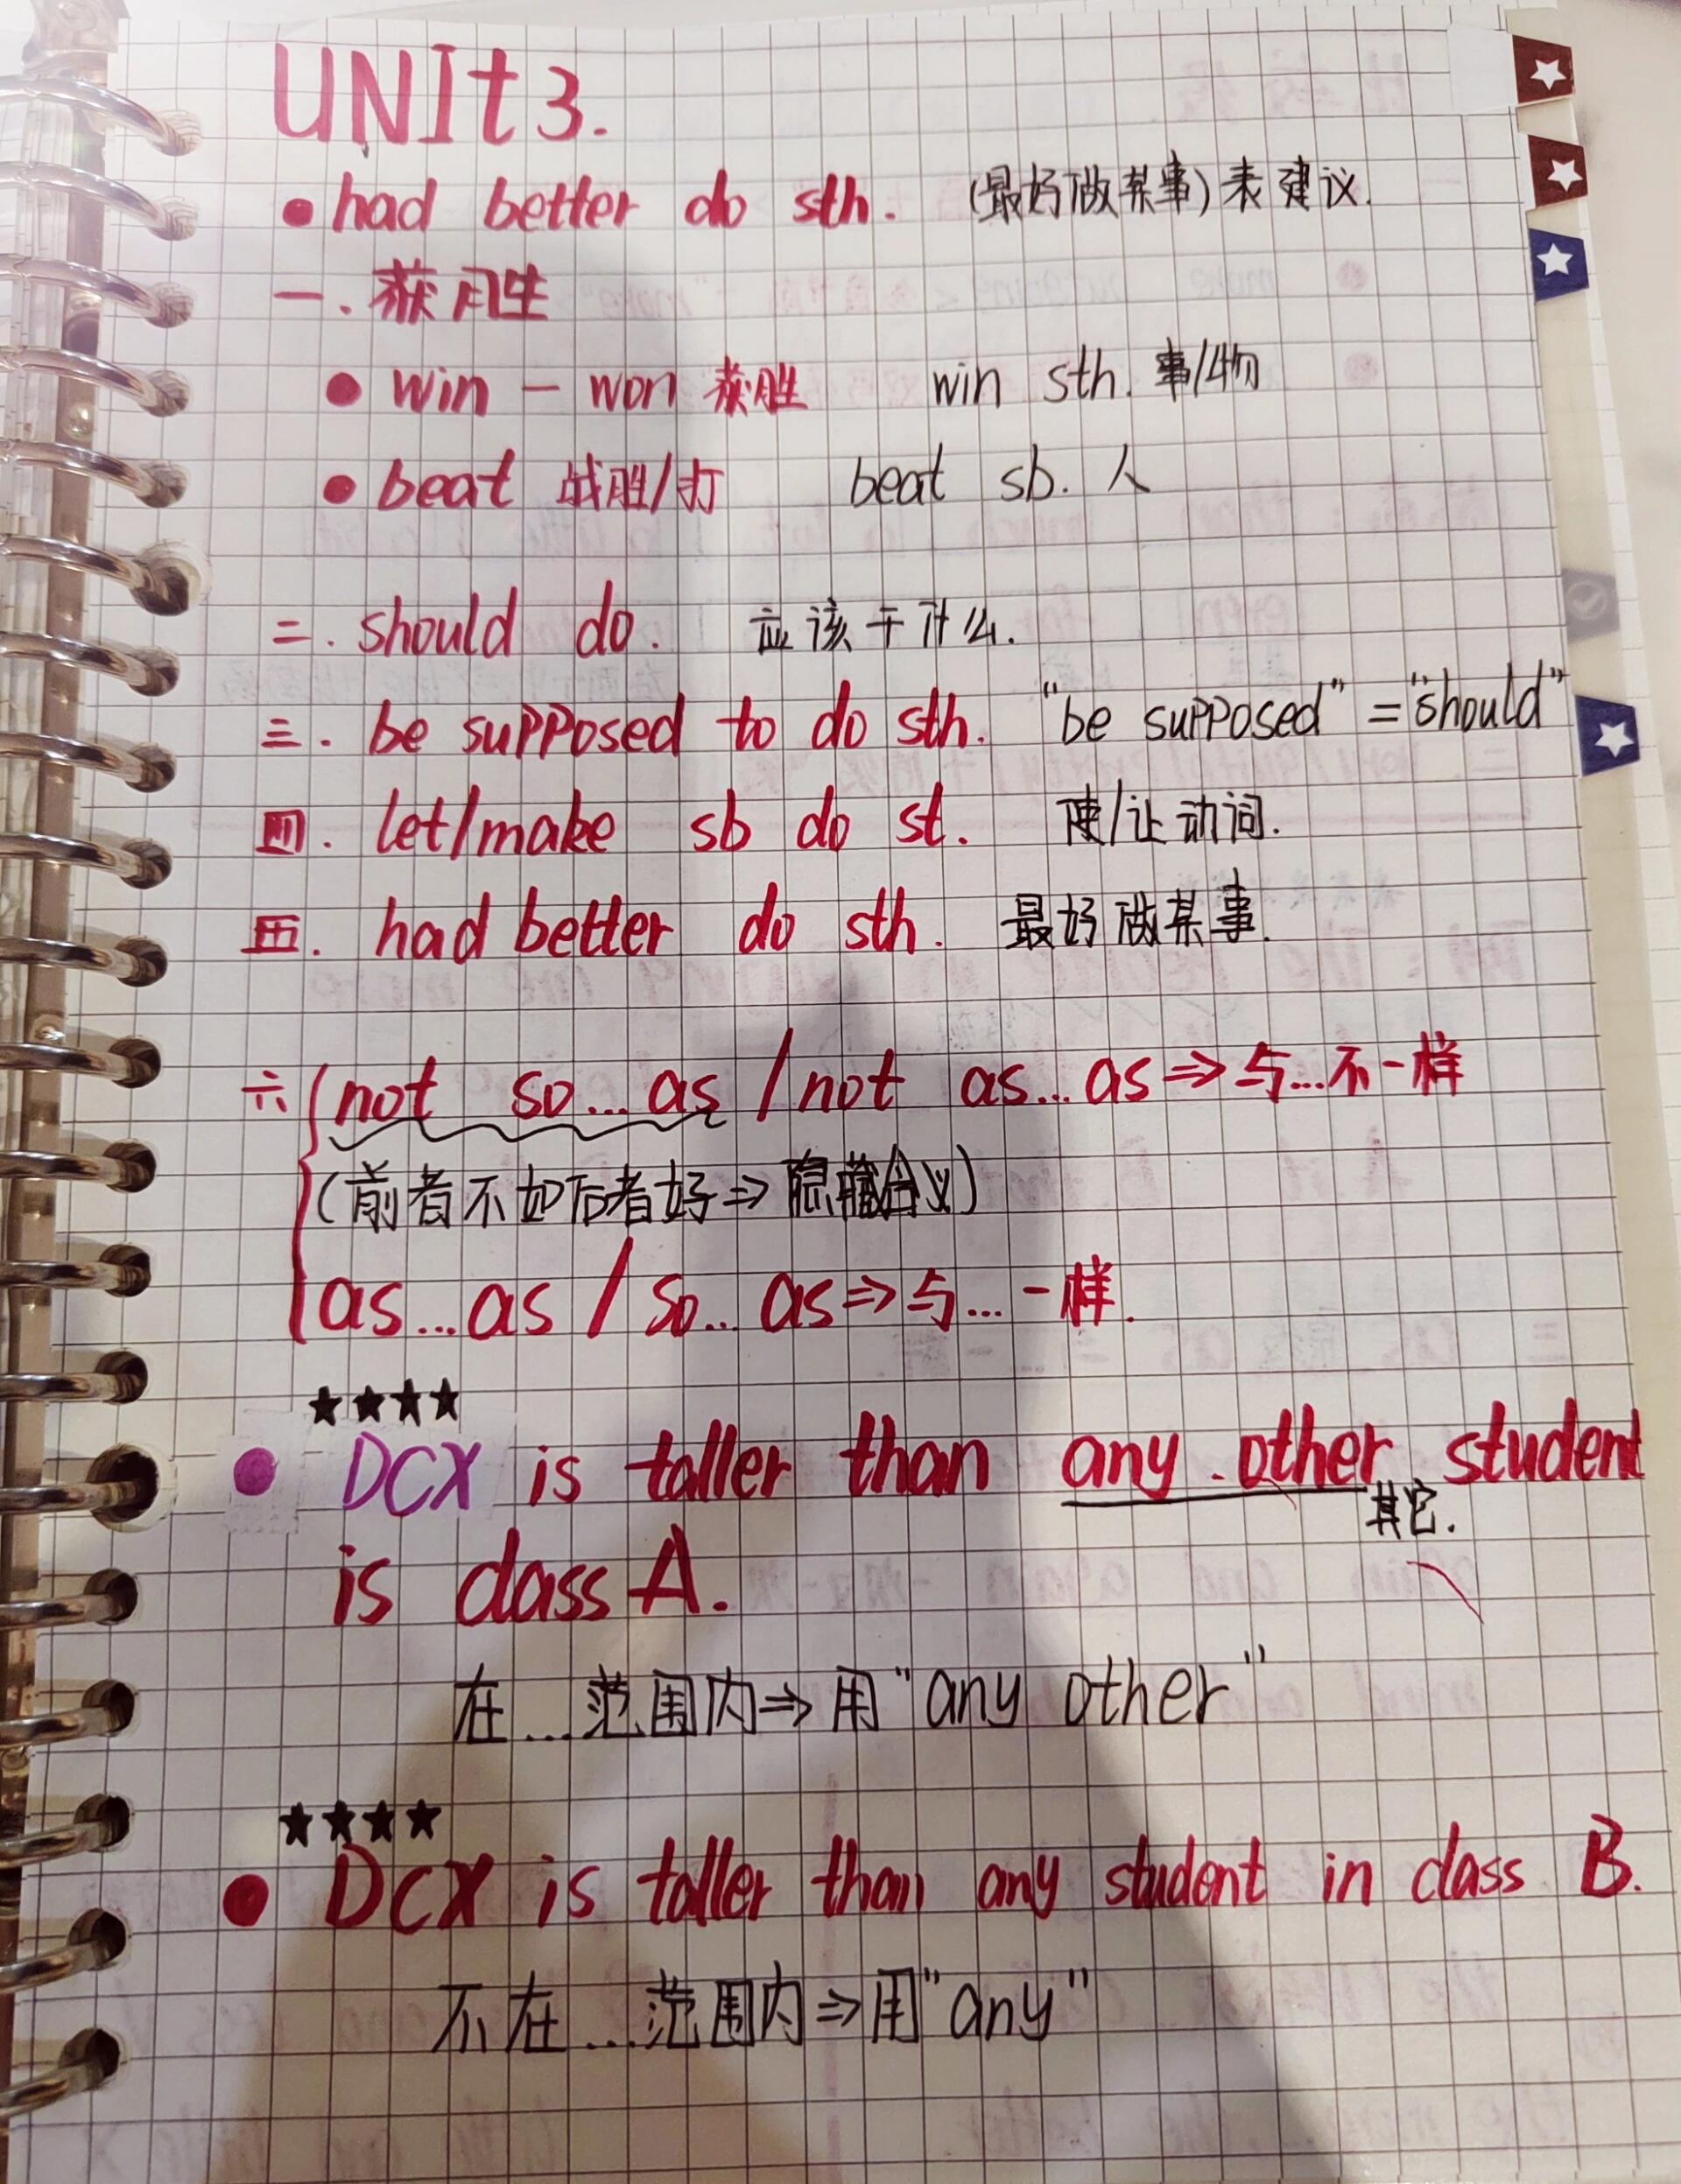 UNIt 3.
• had better do sth. (最好做某事)表建议.
一. 获胜
• win — won 获胜 win sth. 事/物
• beat 战胜/打 beat sb. 人
二. should do. 应该干什么.
三. be supposed to do sth. "be supposed" = "should"
四. let/make sb do st. 使/让动词.
五. had better do sth. 最好做某事.
六 not so...as / not as...as ⇒ 与...不一样
(前者不如后者好 ⇒ 隐藏含义)
as...as / so...as ⇒ 与...一样.
★★★★
• DCX is taller than any other student
其它.
is class A.
在...范围内 ⇒ 用"any other"
★★★★
• DCX is taller than any student in class B.
不在...范围内 ⇒ 用"any"